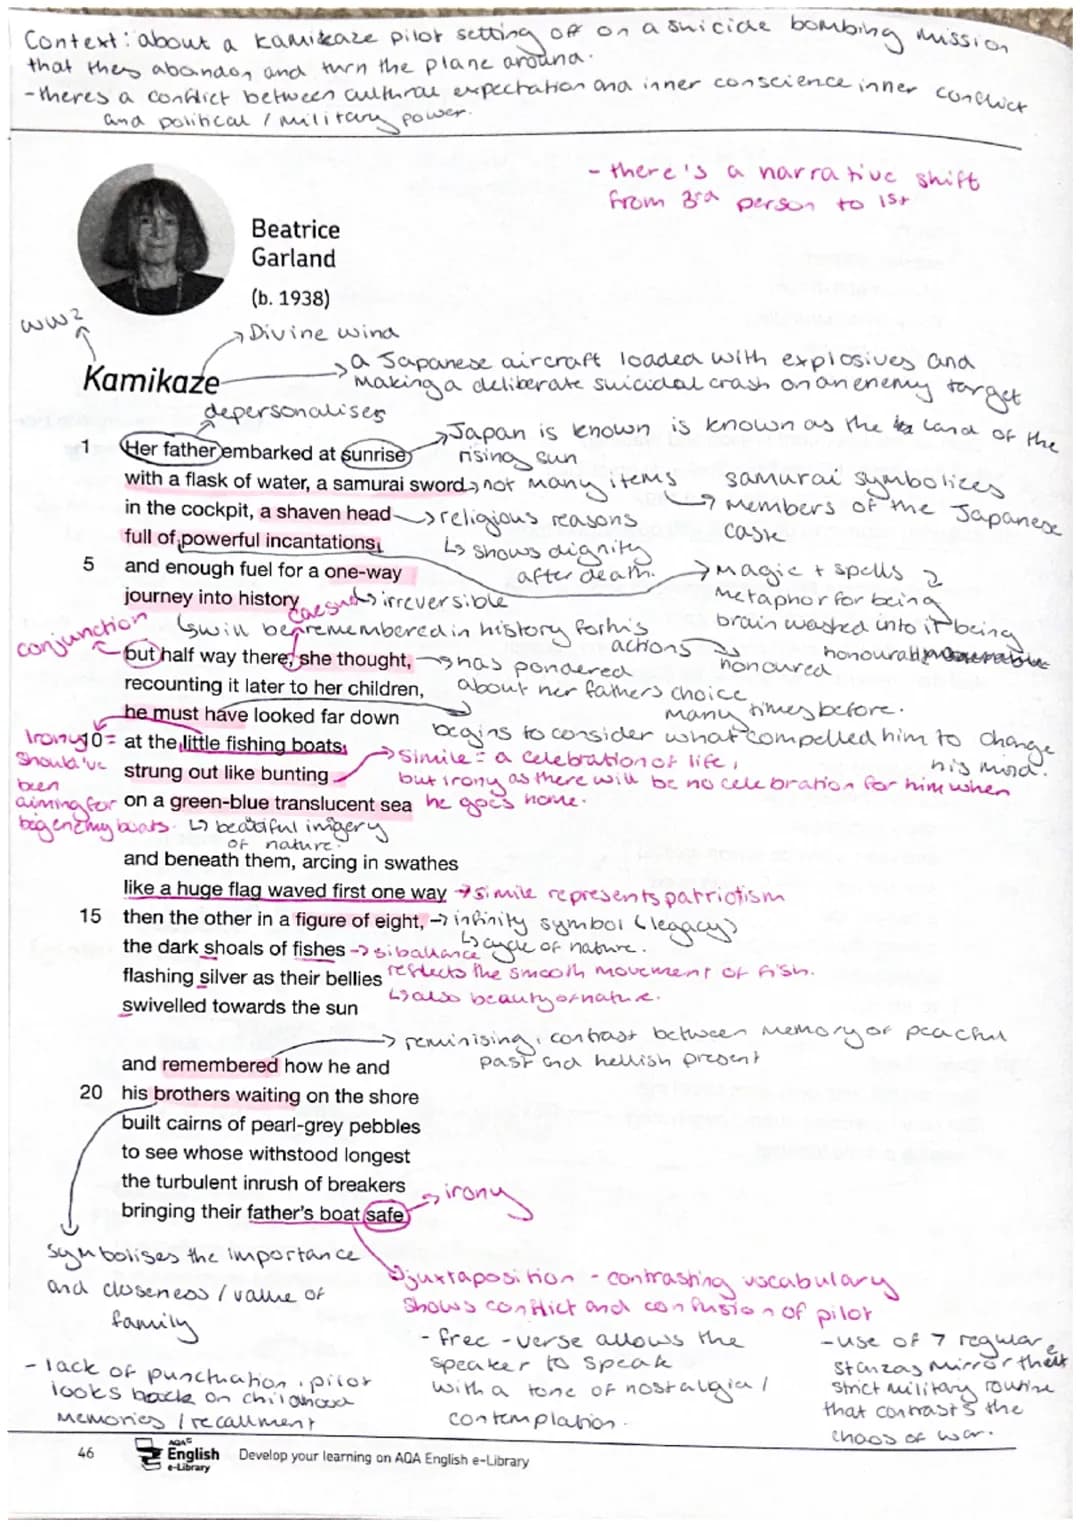 Context: about a kamikaze pilot setting off on a suicide bombing mission
that they abandon and turn the plane around.
- theres a conflict between cultural expectation and inner conscience inner conflict
and political / military power.
- there's a narrative shift
from 3rd person to 1st
Beatrice
Garland
(b. 1938)
WW2
Divine wind
Kamikaze
a Japanese aircraft loaded with explosives and
making a deliberate suicidal crash on an enemy target
depersonalises
1 Her father embarked at sunrise
Japan is known is known as the land of the
rising sun
with a flask of water, a samurai sword
not many items
samurai symbolizes
members of the Japanese
caste
in the cockpit, a shaven head
religious reasons
↳ shows dignity
after death.
full of powerful incantations
magic + spells
metaphor for being
brain washed into it being
honourable
5 and enough fuel for a one-way
journey into history
irreversible
caesura
↳ will be remembered in history for his
actions
honoured
conjunction
but half way there, she thought,
has pondered
about her fathers choice
many times before.
recounting it later to her children,
he must have looked far down
begins to consider what compelled him to change
his mind.
10 at the little fishing boats
Irony =
should've
been
aiming for
big enemy boats.
strung out like bunting
Simile = a celebration of life,
but irony as there will be no celebration for him when
he goes home.
on a green-blue translucent sea
↳ beautiful imigery
of nature.
and beneath them, arcing in swathes
like a huge flag waved first one way
simile represents patriotism
15 then the other in a figure of eight,
infinity symbol (legacy)
↳ cycle of nature.
the dark shoals of fishes
siballance
reflects the smooth movement of fish.
↳ also beauty of nature.
flashing silver as their bellies
swivelled towards the sun
reminising, contrast between memory of peaceful
past and hellish present
and remembered how he and
20 his brothers waiting on the shore
built cairns of pearl-grey pebbles
to see whose withstood longest
the turbulent inrush of breakers
bringing their father's boat safe
irony
symbolises the importance
and closeness / value of
family
juxtaposition - contrasting vocabulary
shows conflict and confusion of pilot
- lack of punctuation, pilot
looks back on childhood
memories / recallment
- free-verse allows the
speaker to speak
with a tone of nostalgia /
contemplation.
- use of 7 regular
stanzas mirror their
strict military routine
that contrasts the
chaos of war.
46 AQA English e-Library Develop your learning on AQA English e-Library